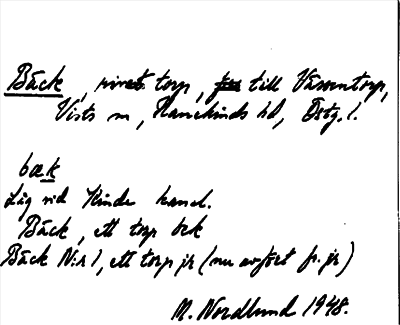 Bäck, rivet torp, till Vässentorp,
Vists sn, Hanekinds hd, Östg. l.
bæk
Låg vid Kinda kanal.
Bäck, ett torp bek
Bäck N:r 1, ett torp jr (nu avfört fr. jr)
M. Nordlund 1948.